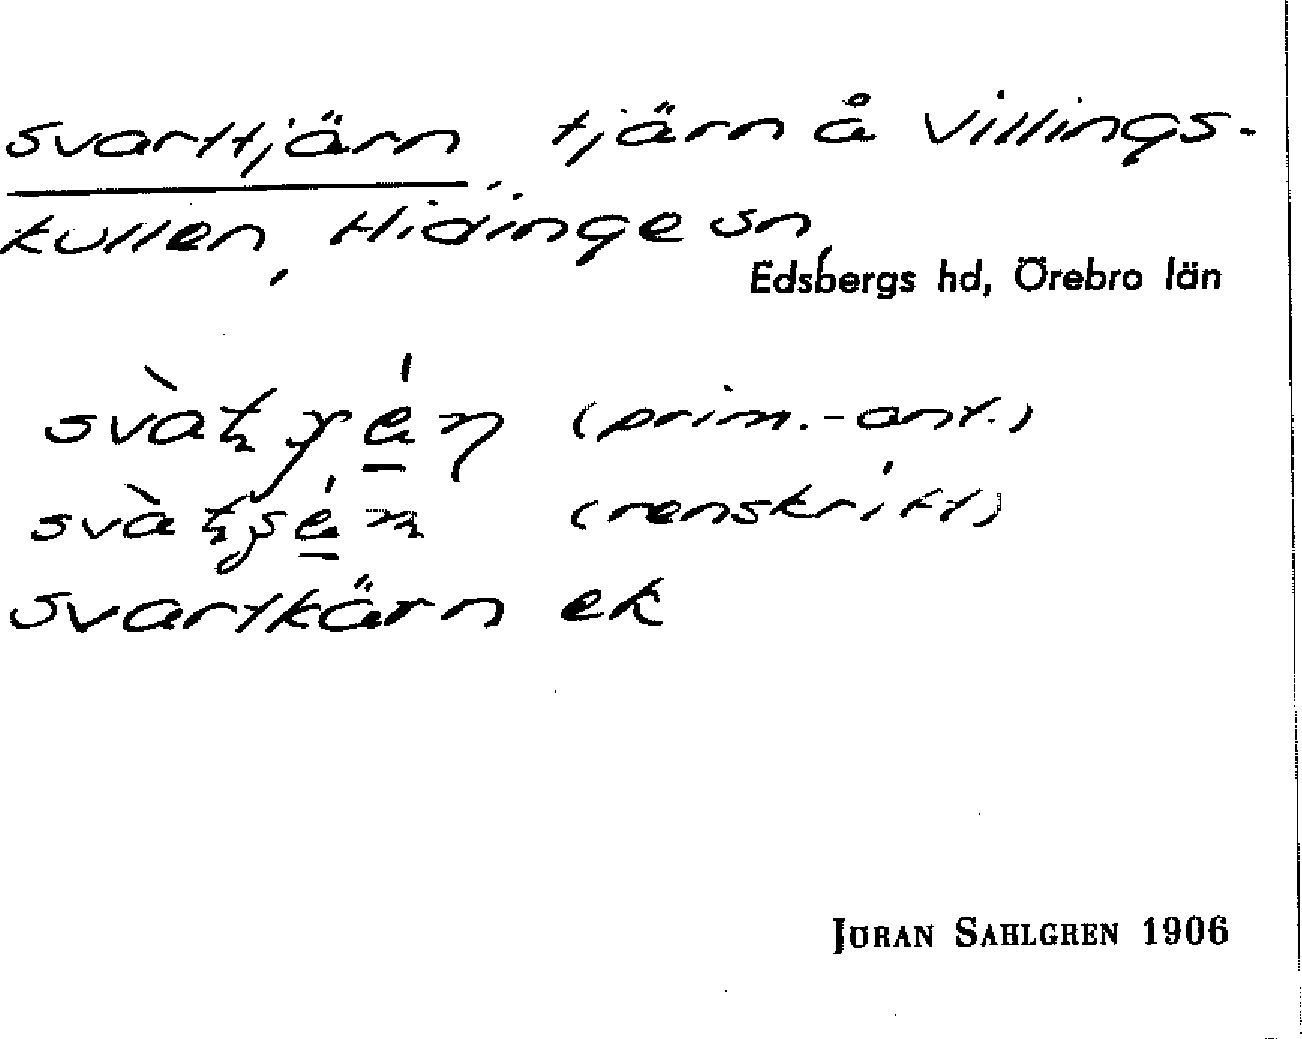 Svarttjärn tjärn å Villings-
kullen, Hidinge sn,
Edsbergs hd, Örebro län
(prim.-ant.)
(renskrift)
Svartkärn ek
JÖRAN SAHLGREN 1906